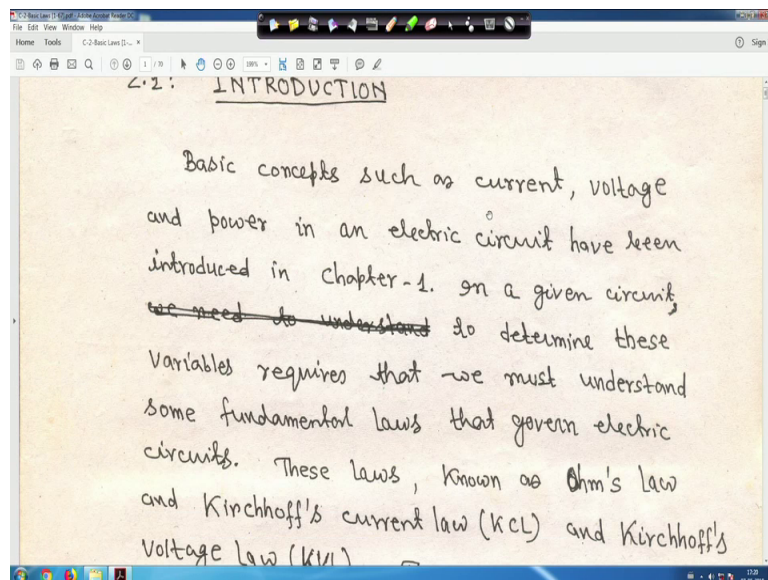 C-2-Basic Laws [1-67].pdf - Adobe Acrobat Reader DC
File Edit View Window Help
Home Tools C-2-Basic Laws [1-... × Sign
1 / 70
2.1: INTRODUCTION
Basic concepts such as current, voltage
and power in an electric circuit have been
introduced in Chapter-1. In a given circuit,
we need to understand to determine these
variables requires that we must understand
some fundamental laws that govern electric
circuits. These laws, known as Ohm's law
and Kirchhoff's current law (KCL) and Kirchhoff's
voltage law (KVL)
17:20